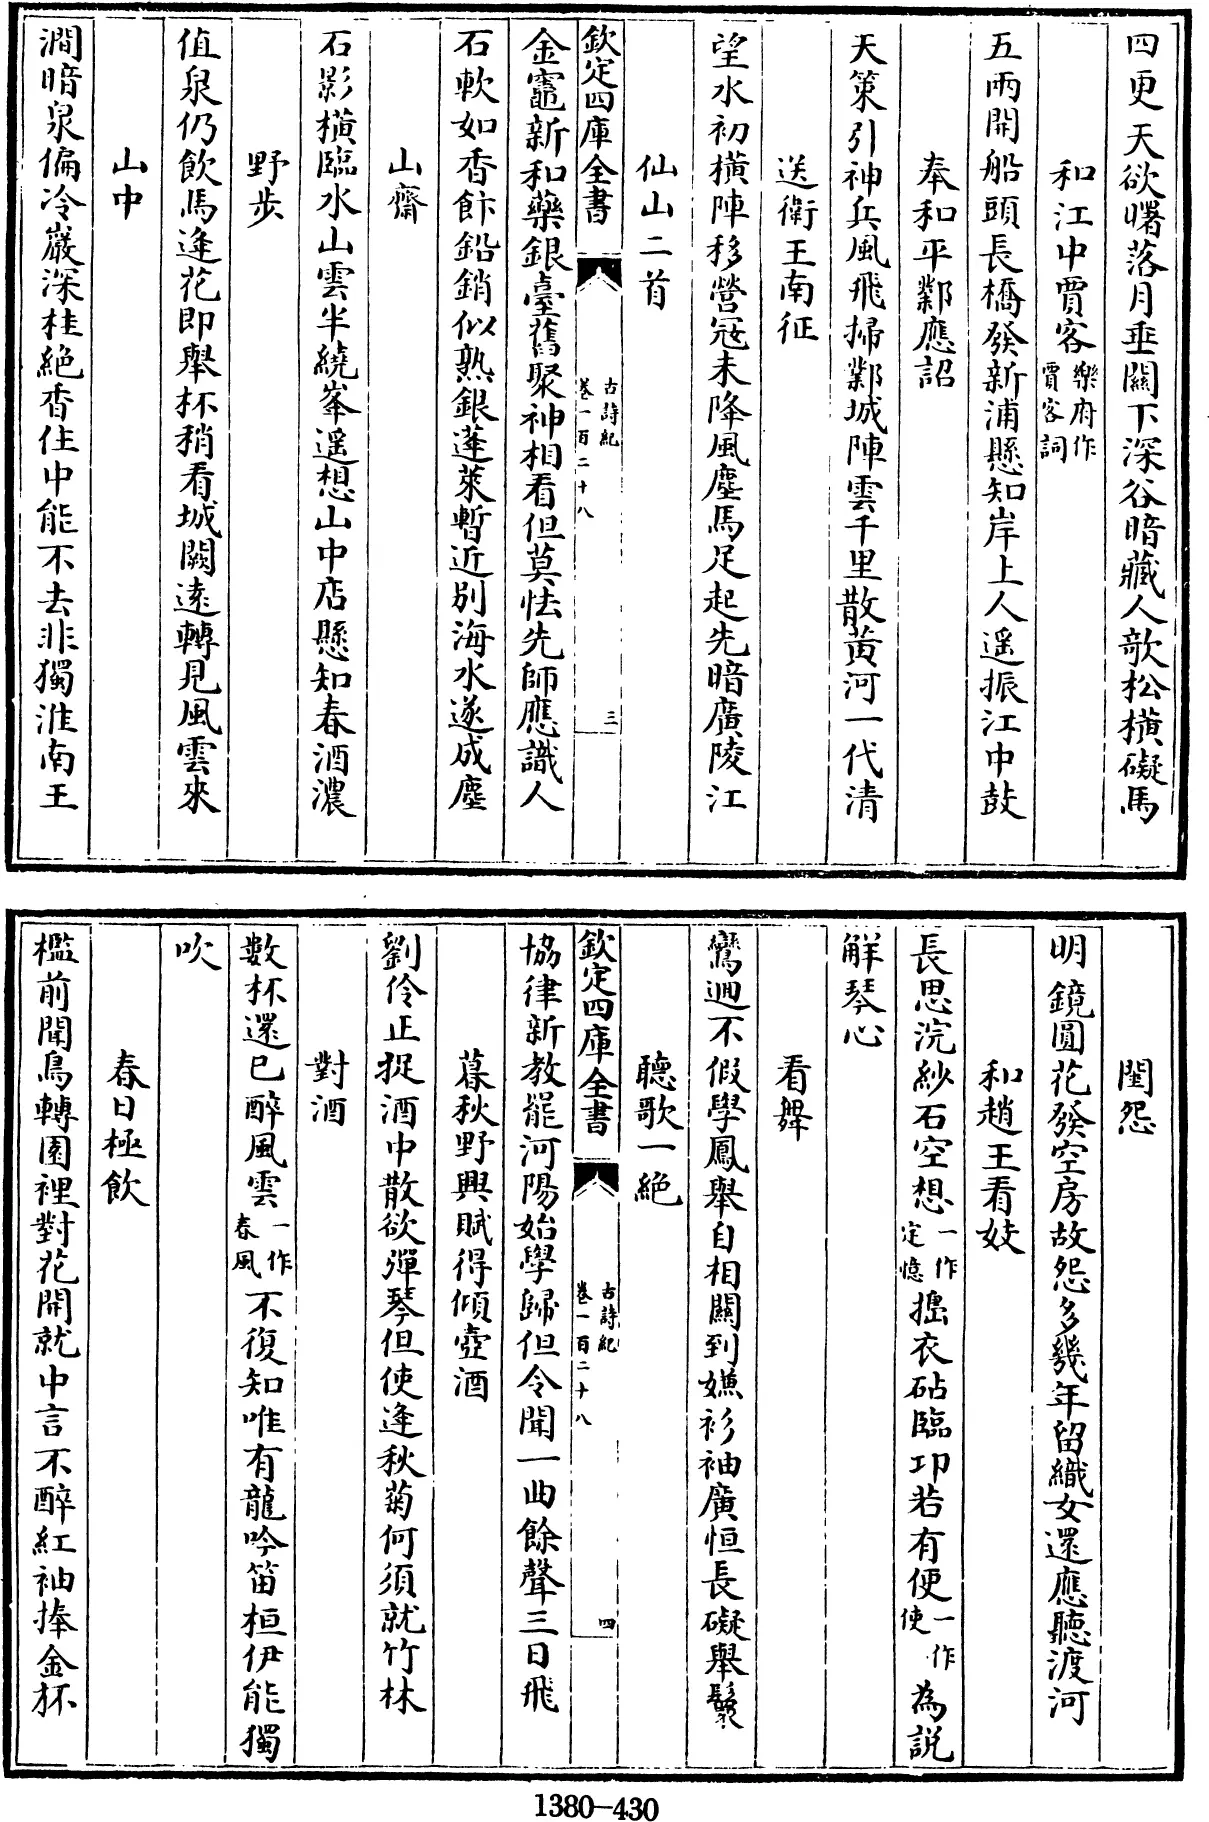 四更天欲曙落月垂關下深谷暗藏人欹松橫礙馬
和江中賈客樂府作賈客詞
五兩開船頭長橋發新浦懸知岸上人遥振江中鼓
奉和平鄴應詔
天策引神兵風飛掃鄴城陣雲千里散黄河一代清
送衛王南征
望水初橫陣移營冦未降風塵馬足起先暗廣陵江
仙山二首
欽定四庫全書
古詩紀
卷一百二十八
三
金竈新和藥銀臺舊聚神相看但莫怯先師應識人
石軟如香飰鉛銷似熟銀蓬萊暫近別海水遂成塵
山齋
石影橫臨水山雲半繞峯遥想山中店懸知春酒濃
野步
值泉仍飲馬逢花即舉杯稍看城闕遠轉見風雲來
山中
澗暗泉偏冷巖深桂絶香住中能不去非獨淮南王
閨怨
明鏡圓花發空房故怨多幾年留織女還應聽渡河
和趙王看妓
長思浣紗石空想一作定憶搗衣砧臨卭若有便一作使為説
解琴心
看舞
鸞迴不假學鳳舉自相關到嫌衫袖廣恒長礙舉鬟
聽歌一絶
欽定四庫全書
古詩紀
卷一百二十八
四
協律新教罷河陽始學歸但令聞一曲餘聲三日飛
暮秋野興賦得傾壺酒
劉伶正捉酒中散欲彈琴但使逢秋菊何須就竹林
對酒
數杯還已醉風雲一作春風不復知唯有龍吟笛桓伊能獨
吹
春日極飲
檻前聞鳥轉園裡對花開就中言不醉紅袖捧金杯
1380-430